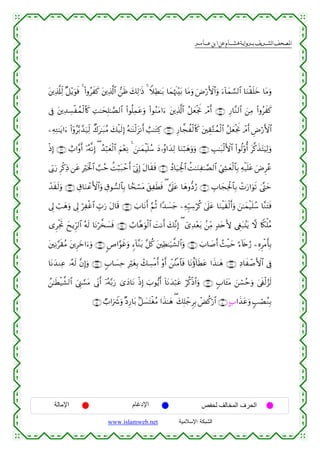 المصحف الشريف برواية هشام عن ابن عامر
وَمَا خَلَقْنَا ٱلسَّمَآءَ وَٱلْأَرْضَ وَمَا بَيْنَهُمَا بَٰطِلًا ۚ ذَٰلِكَ ظَنُّ ٱلَّذِينَ كَفَرُوا۟ ۚ فَوَيْلٌ لِّلَّذِينَ
كَفَرُوا۟ مِنَ ٱلنَّارِ أَمْ نَجْعَلُ ٱلَّذِينَ ءَامَنُوا۟ وَعَمِلُوا۟ ٱلصَّٰلِحَٰتِ كَٱلْمُفْسِدِينَ فِى
ٱلْأَرْضِ أَمْ نَجْعَلُ ٱلْمُتَّقِينَ كَٱلْفُجَّارِ كِتَٰبٌ أَنزَلْنَٰهُ إِلَيْكَ مُبَٰرَكٌ لِّيَدَّبَّرُوٓا۟ ءَايَٰتِهِۦ
وَلِيَتَذَكَّرَ أُو۟لُوا۟ ٱلْأَلْبَٰبِ وَوَهَبْنَا لِدَاوُۥدَ سُلَيْمَٰنَ ۚ نِعْمَ ٱلْعَبْدُ ۖ إِنَّهُۥٓ أَوَّابٌ إِذْ
عُرِضَ عَلَيْهِ بِٱلْعَشِىِّ ٱلصَّٰفِنَٰتُ ٱلْجِيَادُ فَقَالَ إِنِّىٓ أَحْبَبْتُ حُبَّ ٱلْخَيْرِ عَن ذِكْرِ رَبِّى
حَتَّىٰ تَوَارَتْ بِٱلْحِجَابِ رُدُّوهَا عَلَىَّ ۖ فَطَفِقَ مَسْحًۢا بِٱلسُّوقِ وَٱلْأَعْنَاقِ وَلَقَدْ
فَتَنَّا سُلَيْمَٰنَ وَأَلْقَيْنَا عَلَىٰ كُرْسِيِّهِۦ جَسَدًا ثُمَّ أَنَابَ قَالَ رَبِّ ٱغْفِرْ لِى وَهَبْ لِى
مُلْكًا لَّا يَنۢبَغِى لِأَحَدٍ مِّنۢ بَعْدِىٓ ۖ إِنَّكَ أَنتَ ٱلْوَهَّابُ فَسَخَّرْنَا لَهُ ٱلرِّيحَ تَجْرِى
بِأَمْرِهِۦ رُخَآءً حَيْثُ أَصَابَ وَٱلشَّيَٰطِينَ كُلَّ بَنَّآءٍ وَغَوَّاصٍ وَءَاخَرِينَ مُقَرَّنِينَ
فِى ٱلْأَصْفَادِ هَٰذَا عَطَآؤُنَا فَٱمْنُنْ أَوْ أَمْسِكْ بِغَيْرِ حِسَابٍ وَإِنَّ لَهُۥ عِندَنَا
لَزُلْفَىٰ وَحُسْنَ مَـَٔابٍ وَٱذْكُرْ عَبْدَنَآ أَيُّوبَ إِذْ نَادَىٰ رَبَّهُۥٓ أَنِّى مَسَّنِىَ ٱلشَّيْطَٰنُ
بِنُصْبٍ وَعَذَابٍ ٱرْكُضْ بِرِجْلِكَ ۖ هَٰذَا مُغْتَسَلٌۢ بَارِدٌ وَشَرَابٌ
الحرف المخالف لحفص الإدغام الإمالة
الشبكة الإسلامية www.islamweb.net